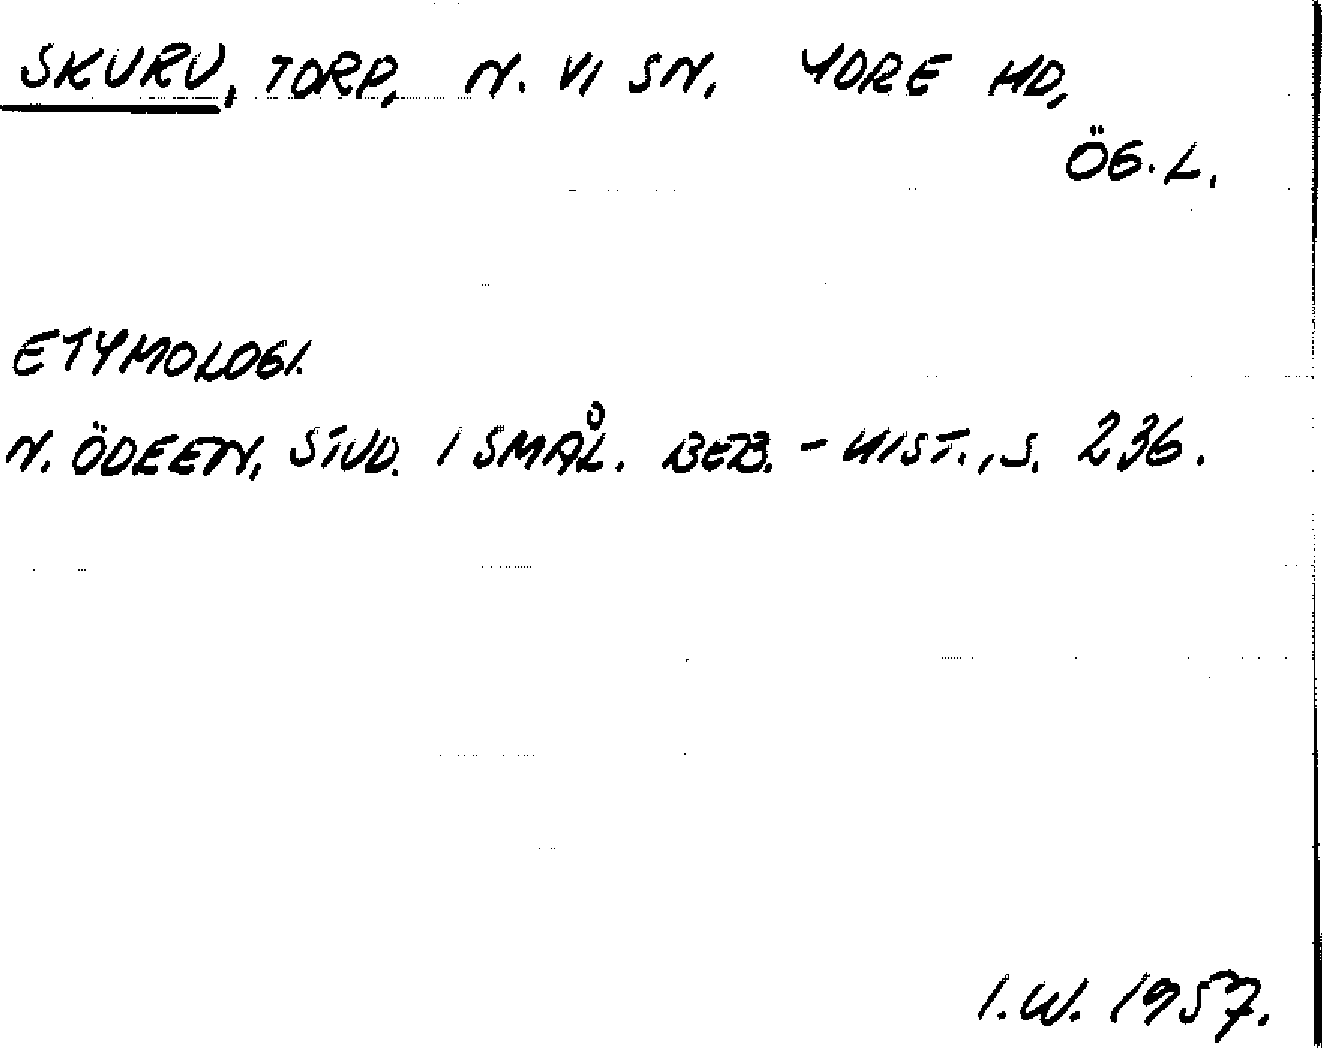 SKURU, TORP, N. VI SN, YDRE HD,
ÖG. L.
ETYMOLOGI.
N. ÖDEEN, STUD. I SMÅL. BEB.-HIST., S. 236.
I.W. 1957.